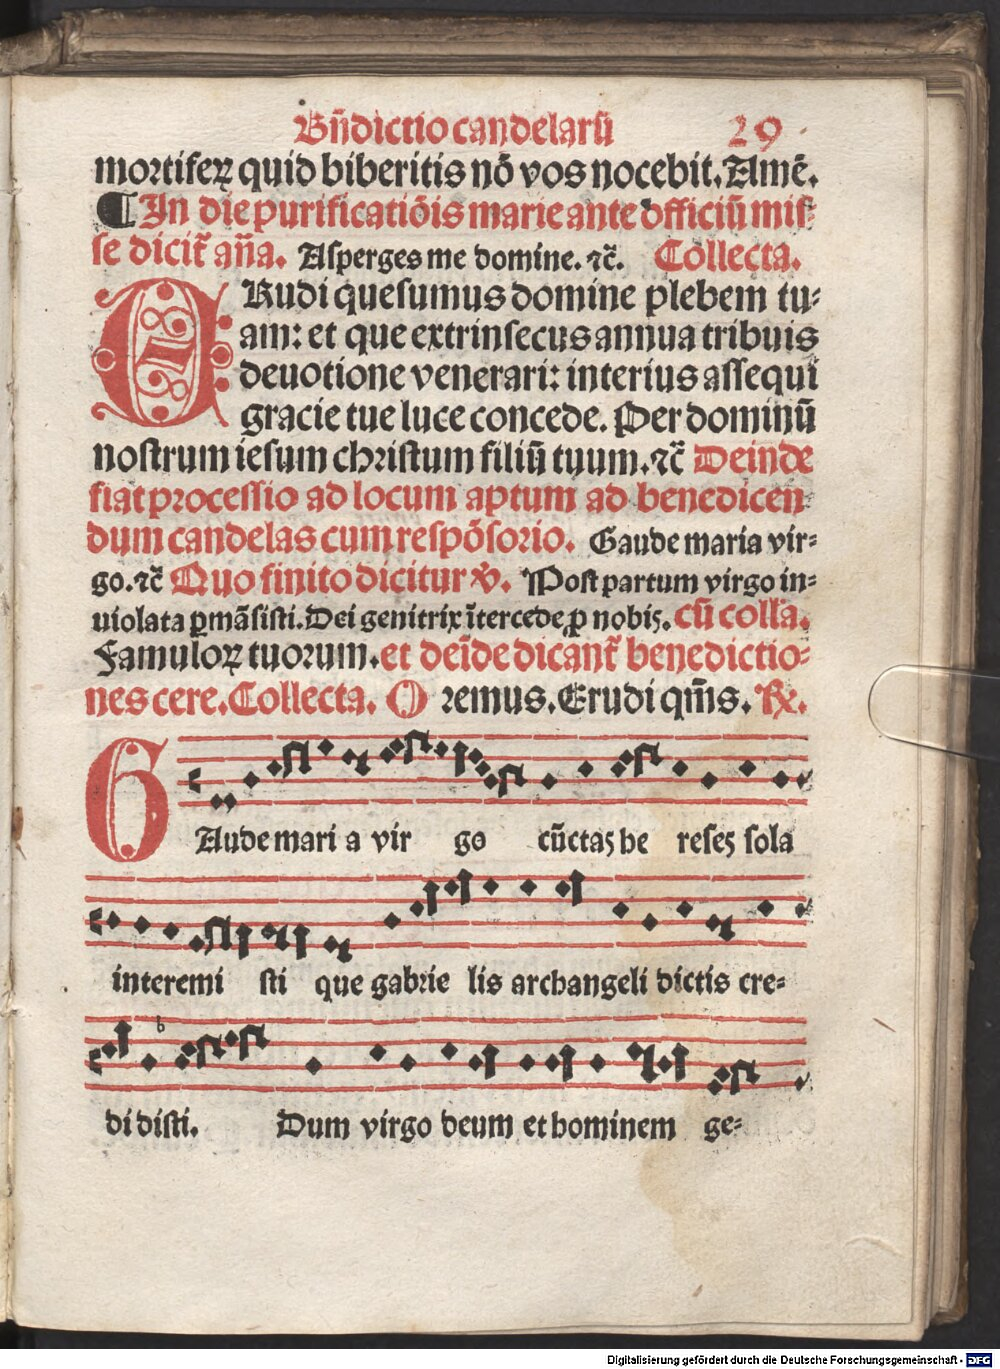 Bñdictio candelarũ 29
mortiferꝝ quid biberitis nō vos nocebit. Amē.
¶ In die purificatiōis marie ante officiũ mis⸗
se dicit᷑ añа. Asperges me domine. ⁊c̃. Collecta.
ERudi quesumus domine plebem tu⸗
am: et que extrinsecus annua tribuis
deuotione venerari: interius assequi
gracie tue luce concede. Per dominũ
nostrum iesum christum filiũ tuum. ⁊c̃ Deinde
fiat processio ad locum aptum ad benedicen
dum candelas cum respōsorio. Gaude maria vir⸗
go. ⁊c̃ Quo finito dicitur ℣. Post partum virgo in⸗
uiolata ꝑmãsisti. Dei genitrix ĩtercede ꝓ nobis. cũ colla.
Famuloꝝ tuorum. et deĩde dicant᷑ benedictio⸗
nes cere. Collecta. O remus. Erudi qm̃s. ℟.
GAude mari a vir go cũctas he reses sola
interemi sti que gabrie lis archangeli dictis cre⸗
di disti. Dum virgo deum et hominem ge⸗
Digitalisierung gefördert durch die Deutsche Forschungsgemeinschaft - DFG